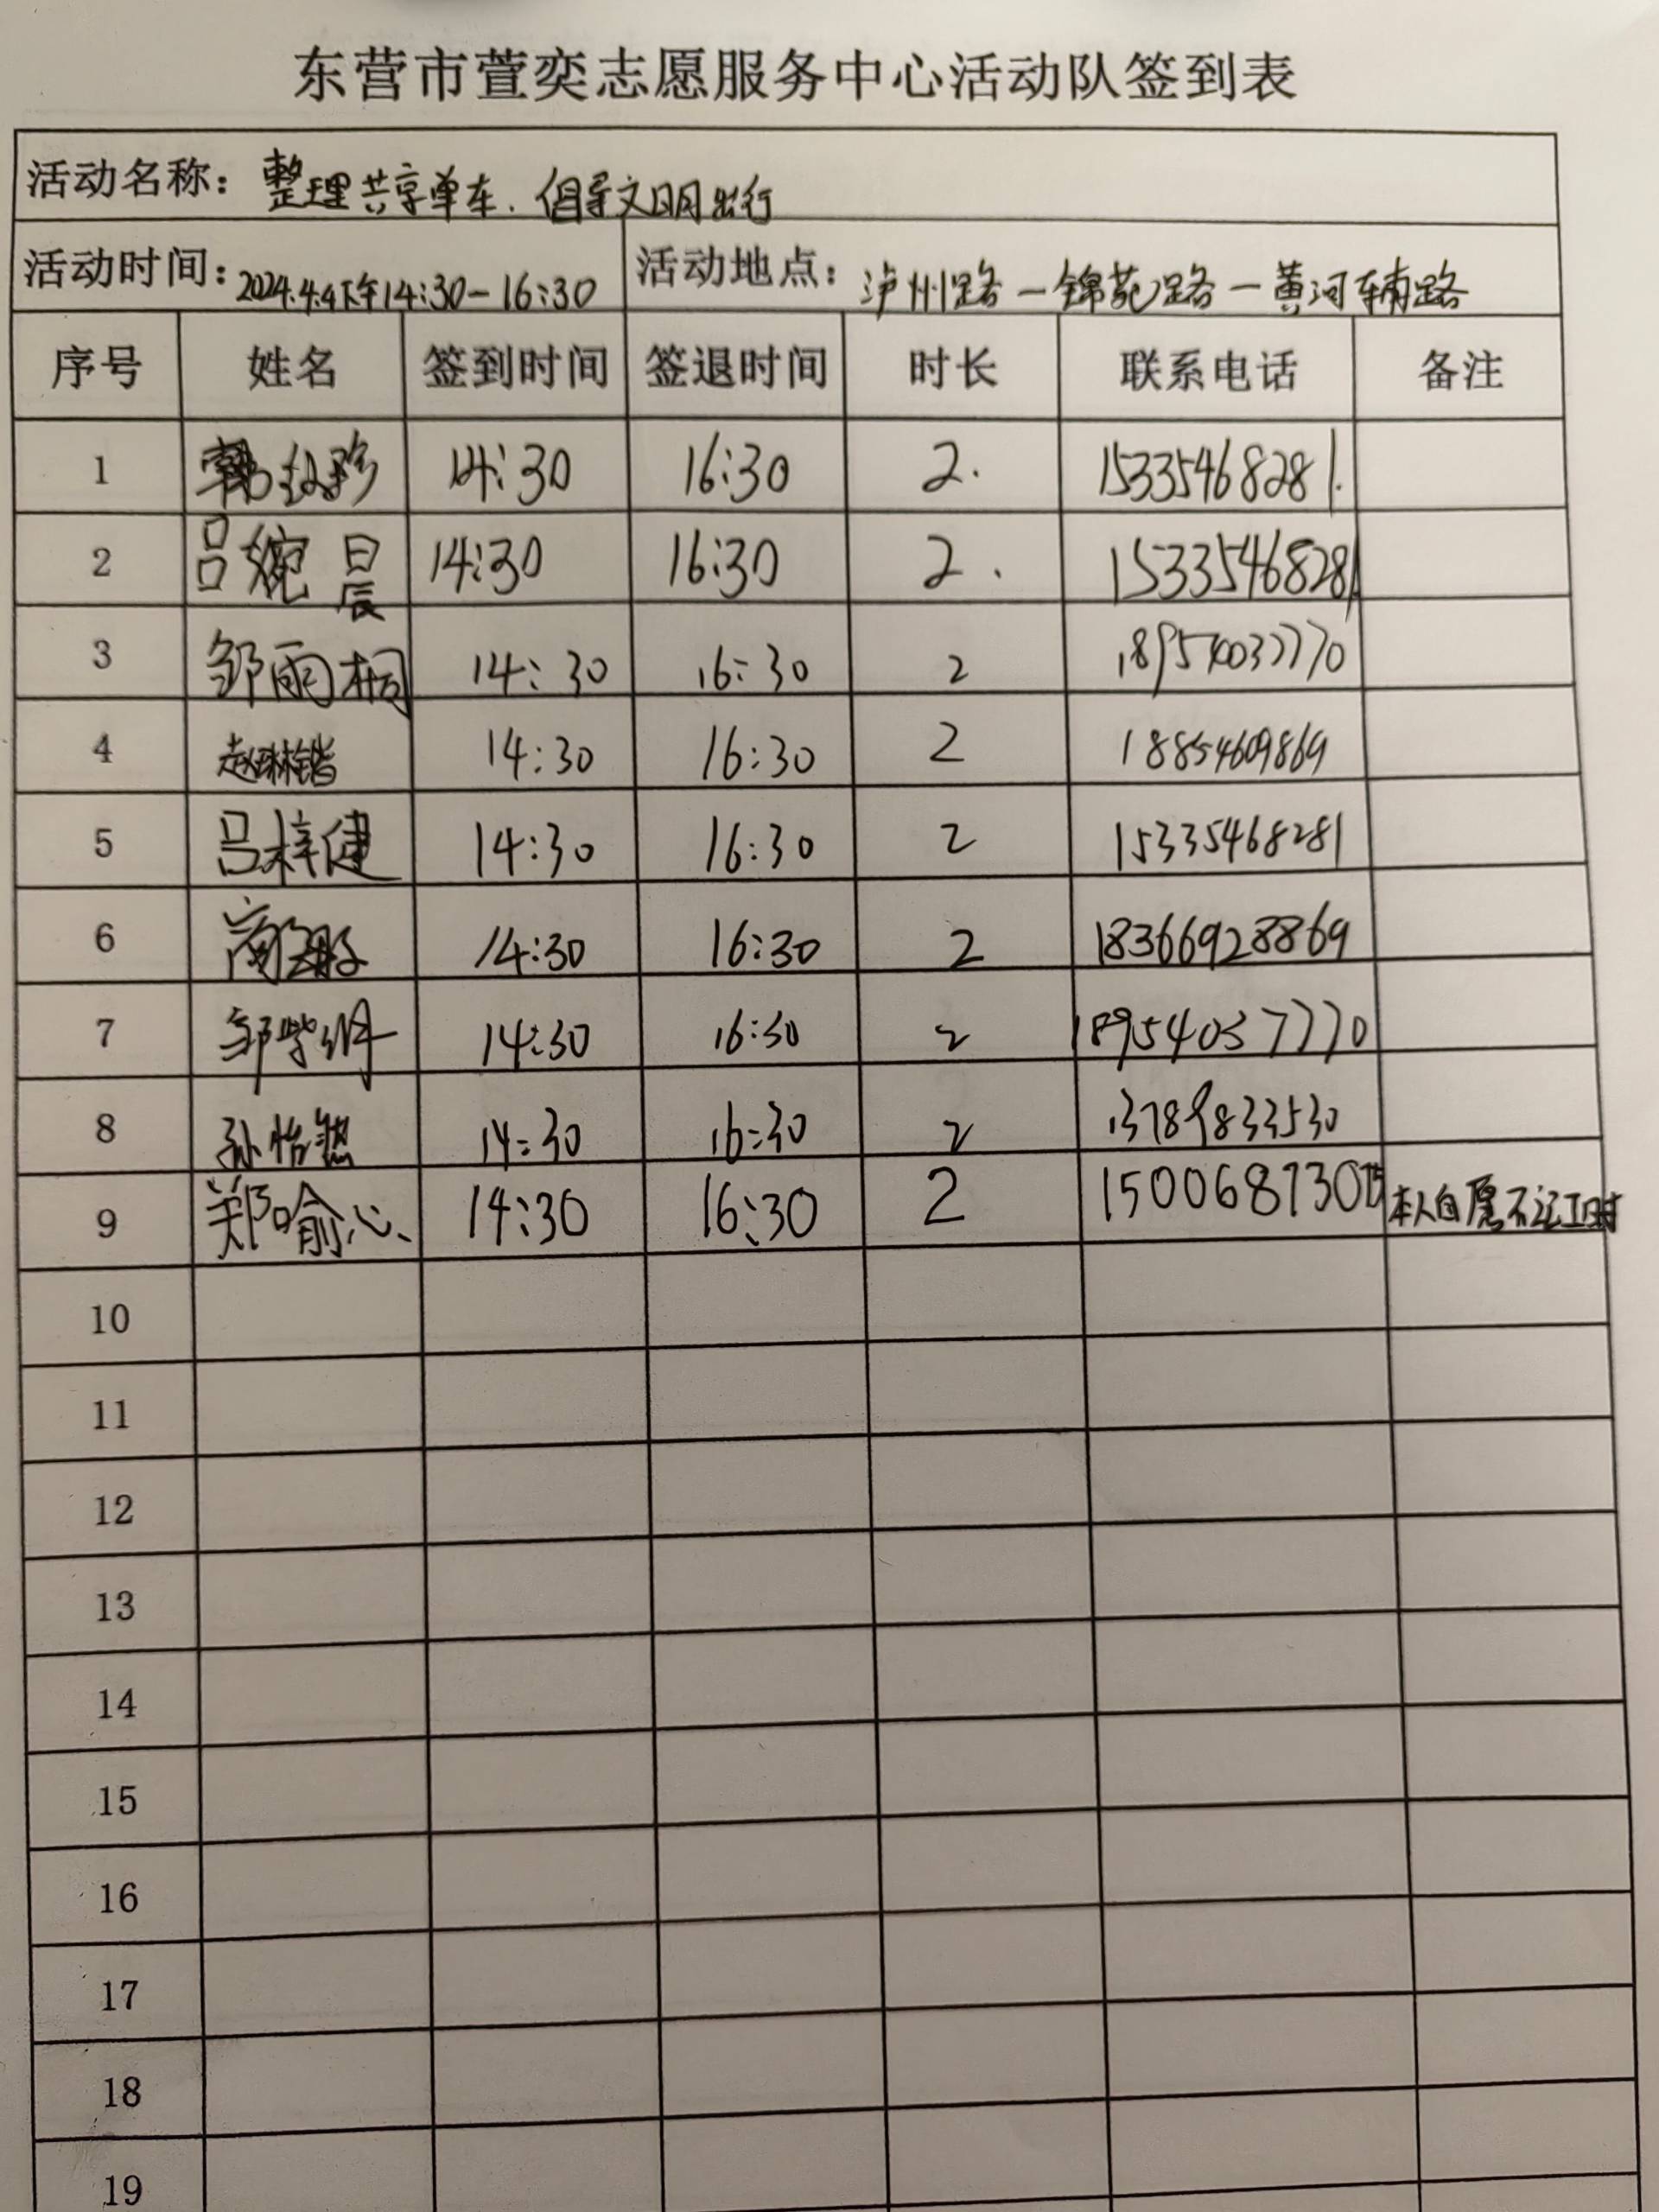 东营市萱奕志愿服务中心活动队签到表
活动名称: 整理共享单车.倡导文明出行
活动时间: 2024.4.4下午14:30-16:30 活动地点: 泸州路-锦苑路-黄河辅路
序号 姓名 签到时间 签退时间 时长 联系电话 备注
1 韩 14:30 16:30 2. 15335468281.
2 吕婉晨 14:30 16:30 2. 15335468281
3 邹雨桐 14:30 16:30 2
4 赵琳锴 14:30 16:30 2 18854609869
5 吕梓健 14:30 16:30 2 15335468281
6 14:30 16:30 2 18366928869
7 邹紫 14:30 16:30 2 18954037770
8 孙怡然 14:30 16:30 2 13789833530
9 郑喻心 14:30 16:30 2 本人自愿不记工时
10
11
12
13
14
15
16
17
18
19